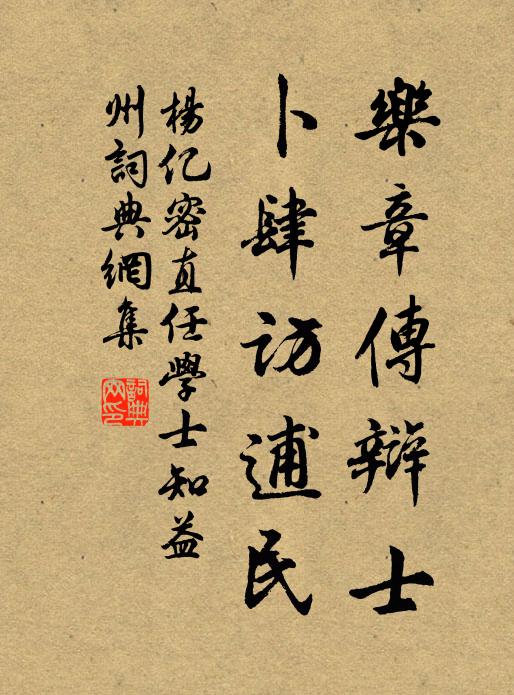 樂章傳辯士
卜肆訪逋民
楊億密直任學士知益
州詞典網集
詞典
网印